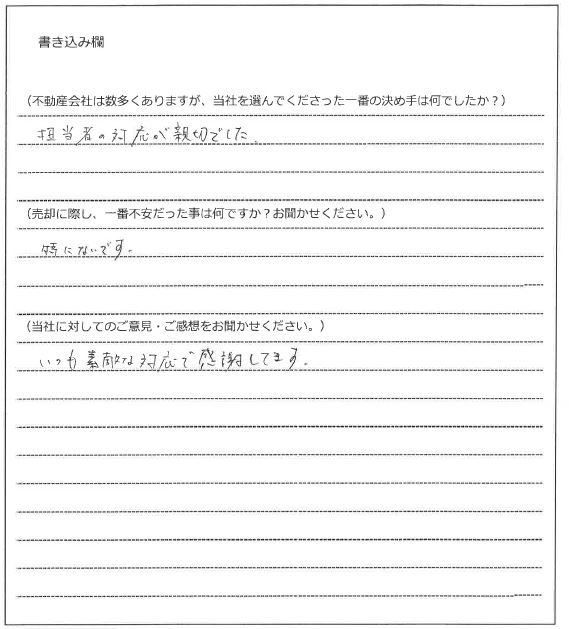 書き込み欄
（不動産会社は数多くありますが、当社を選んでくださった一番の決め手は何でしたか？）
担当者の対応が親切でした。
（売却に際し、一番不安だった事は何ですか？お聞かせください。）
特にないです。
（当社に対してのご意見・ご感想をお聞かせください。）
いつも素敵な対応で感謝してます。